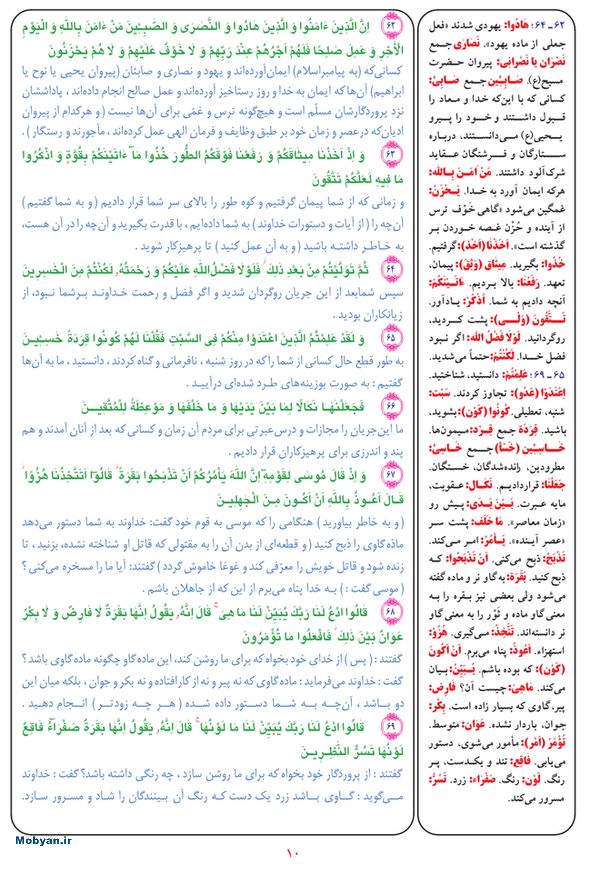 ۶۲ـ۶۴: هَادُوا: یهودی شدند «فعل
جعلی از ماده یهود». نَصَارَی جمع
نَصْران یا نَصْرانی: پیروان حضرت
مسیح(ع). صَابِئِین جمع صَابِئ:
کسانی که با این‌که خدا و معاد را
قبـول داشـتند و خـود را پـیرو
یحیـی(ع) مـی‌دانسـتند، دربـاره
ستـارگـان و فـرشتگان عـقـاید
شرک‌آلود داشتند. مَنْ ءَامَنَ بِـاللّه:
هرکه ایمان آورد به خـدا. یَـحْزَنُ:
غمگین می‌شود «گاهی خَوْف ترس
از آینده و حُزْن غصه خوردن بر
گذشته است». أَخَذْنَا (أَخَذَ): گرفتیم.
خُذُوا: بگیرید. مِیثاق (وَثِقَ): پیمان،
تعهد. رَفَعْنَا: بالا بردیم. ءَاتَیْنَکُمْ:
آنچه دادیم به شما. اُذْکُرْ: یـادآور.
تَـتَّقُونَ (وَلَـی): پشت کـردید،
روگردانید. لَوْلَا فَضْلُ اللّه: اگر نبود
فضل خـدا. لَکُنْتُمْ: حتماً می‌شدید.
۶۵ـ۶۹: عَلِمْتُمْ: دانستید، شناختید.
اِعْتَدَوْا (عَدُو): تجاوز کردند. سَبْت:
شنبه، تعطیلی. کُونُوا (کَوَنَ): بشوید،
باشید. قِرَدَة جمع قِرْد: میمون‌ها.
خَـاسِـئِین (خَسَأَ) جمع خَاسِئ:
مطرودین، رانده‌شدگان، خستگان.
جَعَلْنَا: قراردادیم. نَکَال: عقوبت،
مایه عبرت. بَـیْنَ یَـدَی: پیش رو
«زمان معاصر». مَا خَلْفَ: پشت سر
«عصر آینده». یَـأْمُرُ: امر مـی‌کند.
تَذْبَحُ: ذبح می‌کنی. أَنْ تَذْبَحُوا: کـه
ذبح کنید. بَقَرَة: به گاو نر و ماده گفته
می‌شود ولی بعضی نیز بقره را به
معنی گاو ماده و ثَوْر را به معنی گاو
نر دانسته‌اند. تَتَّخِذُ: می‌گیری. هُزُو:
استهزاء. أَعُوذُ: پناه می‌برم. أَنْ أَکُونَ
(کَوَنَ): که بوده باشم. یُـبَیِّنْ: بیان
می‌کند. مَاهِیَ: چیست آن؟ فَارِض:
پیر، گاوی که بسیار زاده است. بِکْر:
جوان، باردار نشده. عَوَان: متوسط.
تُؤْمَرُ (أَمَرَ): مأمور می‌شوی، دستور
می‌یابی. فَاقِع: تند و یکدست، پر
رنگ. لَوْن: رنگ. صَفْرَاء: زرد. تَسُرُّ:
مسرور می‌کند.
۶۲ إِنَّ الَّذِینَ ءَامَنُوا وَ الَّذِینَ هَادُوا وَ النَّصَرَی وَ الصَّبِئِینَ مَنْ ءَامَنَ بِاللَّهِ وَ الْیَوْمِ
الْأَخِرِ وَ عَمِلَ صَلِحًا فَلَهُمْ أَجْرُهُمْ عِنْدَ رَبِّهِمْ وَ لَا خَوْفٌ عَلَیْهِمْ وَ لَا هُمْ یَحْزَنُونَ
کسانی‌که (به پیامبراسلام) ایمان‌آورده‌اند و یهود و نصاری و صابئان (پیروان یحیی یا نوح یا
ابراهیم) آن‌ها که ایمان به خدا و روز رستاخیز آورده‌اند و عمل صالح انجام داده‌اند ، پاداششان
نزد پروردگارشان مسلّم است و هیچ‌گونه ترس و غمّی برای آن‌ها نیست ( و هرکدام از پیروان
ادیان‌که درعصر و زمان خود بر طبق وظایف و فرمان الهی عمل کرده‌اند ، مأجورند و رستگار ) .
۶۳ وَ إِذْ أَخَذْنَا مِیثَاقَکُمْ وَ رَفَعْنَا فَوْقَکُمُ الطُّورَ خُذُوا مَا ءَاتَیْنَکُمْ بِقُوَّةٍ وَ اذْکُرُوا
مَا فِیهِ لَعَلَّکُمْ تَتَّقُونَ
و زمانی که از شما پیمان گرفتیم و کوه طور را بالای سر شما قرار دادیم ( و به شما گفتیم )
آن‌چه را ( از آیات و دستورات خداوند ) به شما داده‌ایم ، با قدرت بگیرید و آن‌چه را در آن هست،
به خـاطر داشتـه باشید ( و به آن عمل کنید ) تا پرهیزکار شوید .
۶۴ ثُمَّ تَوَلَّیْتُمْ مِنْ بَعْدِ ذَلِکَ فَلَوْلَا فَضْلُ اللَّهِ عَلَیْکُمْ وَ رَحْمَتُهُ لَکُنْتُمْ مِنَ الْخَسِرِینَ
سپس شمابعد از این جریان روگردان شدید و اگر فضل و رحمت خداونـد برشما نبود، از
زیانکاران بودید .
۶۵ وَ لَقَدْ عَلِمْتُمُ الَّذِینَ اعْتَدَوْا مِنْکُمْ فِی السَّبْتِ فَقُلْنَا لَهُمْ کُونُوا قِرَدَةً خَسِئِینَ
به طور قطع حال کسانی از شما را که در روز شنبه ، نافرمانی و گناه کردند ، دانستید ، ما به آن‌ها
گفتیم : به صورت بوزینه‌های طـرد شده‌ای درآییـد .
۶۶ فَجَعَلْنَهَا نَکَالًا لِمَا بَیْنَ یَدَیْهَا وَ مَا خَلْفَهَا وَ مَوْعِظَةً لِلْمُتَّقِیـنَ
ما این‌جریان را مجازات و درس‌عبرتی برای مردم آن زمان و کسانی که بعد از آنان آمدند و هم
پند و اندرزی برای پرهیزکاران قرار دادیم .
۶۷ وَ إِذْ قَالَ مُوسَی لِقَوْمِهِ إِنَّ اللَّهَ یَأْمُرُکُمْ أَنْ تَذْبَحُوا بَقَرَةً قَالُوا أَتَتَّخِذُنَا هُزُوًا
قَـالَ أَعُـوذُ بِاللَّهِ أَنْ أَکُـونَ مِـنَ الْجَهِلِیـنَ
( و به خاطر بیاورید ) هنگامی را که موسی به قوم خود گفت: خداوند به شما دستور می‌دهد
مادّه‌گاوی را ذبح کنید ( و قطعه‌ای از بدن آن را به مقتولی که قاتل او شناخته نشده، بزنید ، تا
زنده شود و قاتل خویش را معرّفی کند و غوغا خاموش گردد ) گفتند: آیا ما را مسخره می‌کنی ؟
(موسی گفت : ) بـه خدا پناه می‌برم از این که از جاهلان باشم .
۶۸ قَالُوا ادْعُ لَنَا رَبَّکَ یُبَیِّنْ لَنَا مَا هِیَ قَالَ إِنَّهُ یَقُولُ إِنَّهَا بَقَرَةٌ لَا فَارِضٌ وَ لَا بِکْرٌ
عَوَانٌ بَیْنَ ذَلِکَ فَافْعَلُوا مَا تُؤْمَرُونَ
گفتند : ( پس ) از خدای خود بخواه که برای ما روشن کند، این ماده گاو چگونه ماده‌گاوی باشد ؟
گفت : خداوند می‌فرماید : ماده گاوی که نه پیر و نه از کارافتاده و نه بکر و جوان ، بلکه میان این
دو بـاشد ، آن‌چـه بـه شمـا دستور داده شده ( هـر چـه زودتـر ) انجـام دهیـد .
۶۹ قَالُوا ادْعُ لَنَا رَبَّکَ یُبَیِّنْ لَنَا مَا لَوْنُهَا قَالَ إِنَّهُ یَقُولُ إِنَّهَا بَقَرَةٌ صَفْرَاءُ فَاقِعٌ
لَوْنُهَا تَسُرُّ النَّظِـرِیـنَ
گفتند : از پروردگار خود بخواه که برای ما روشن سازد ، چه رنگی داشته باشد؟ گفت : خداوند
مـی‌گوید : گـاوی بـاشد زرد یک دست کـه رنگ آن بـینندگان را شـاد و مسـرور سازد.
Mobyan.ir
۱۰